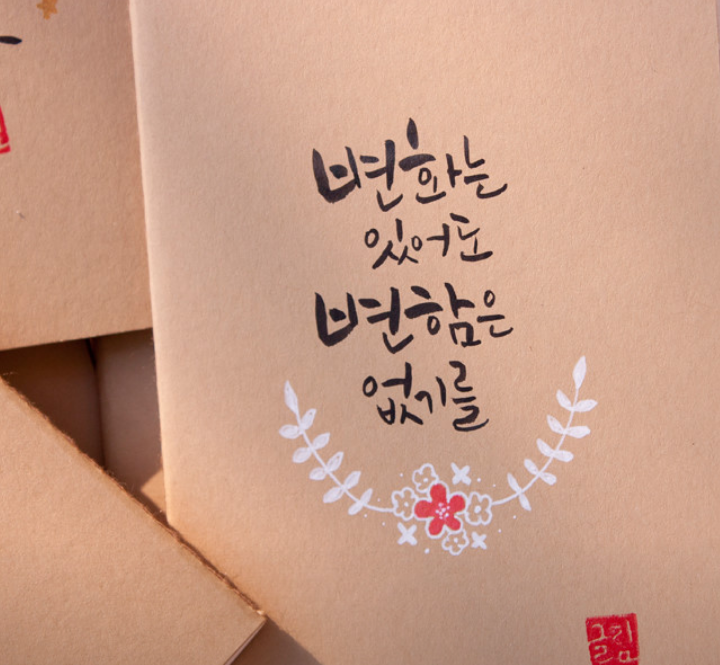 변화는
있어도
변함은
없기를